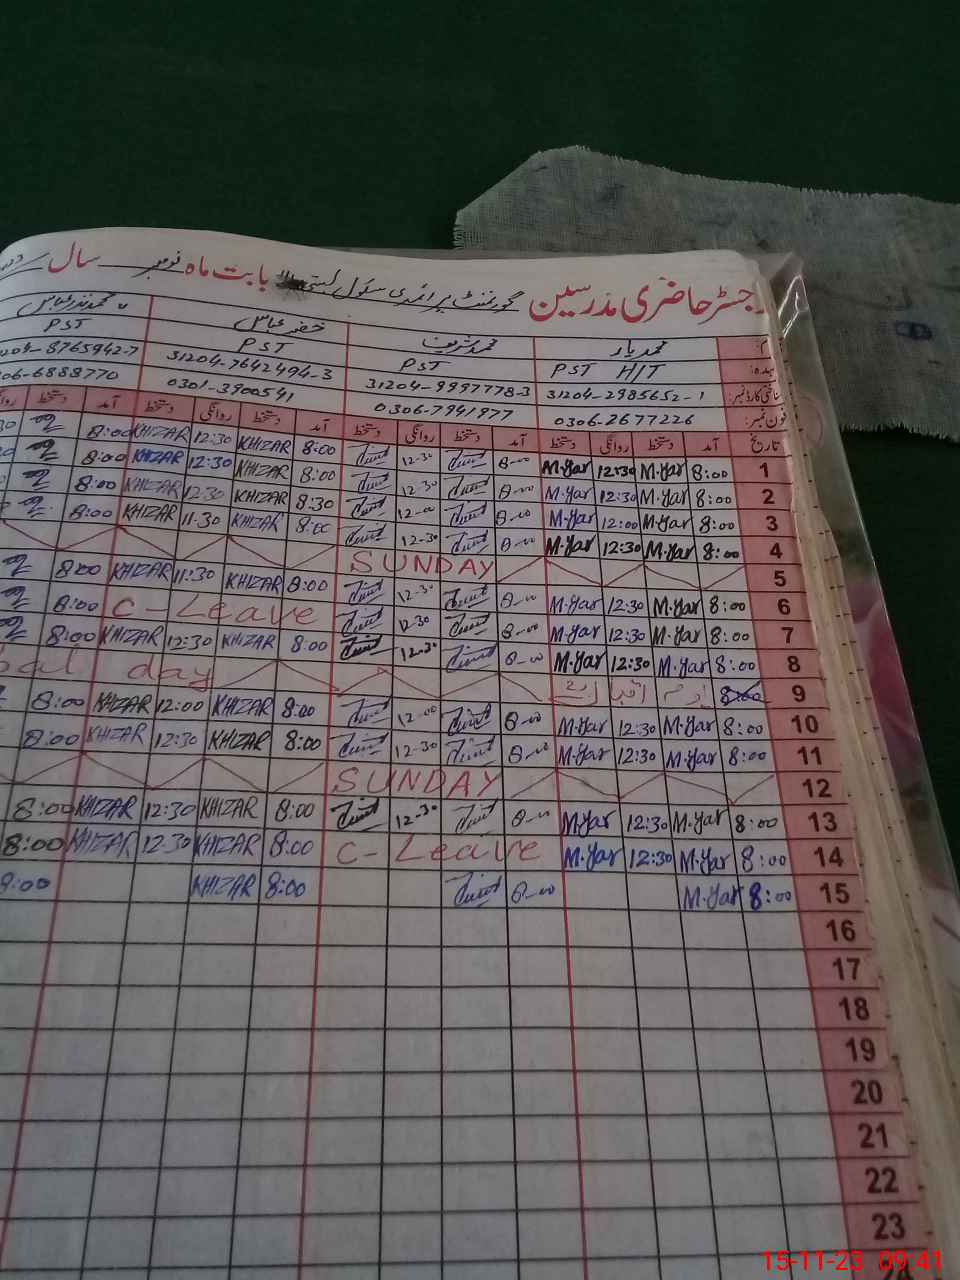 رجسٹر حاضری مدرسین گورنمنٹ پرائمری سکول بستی بابت ماہ نومبر سال
نام: محمد یار محمد شریف خضر عباس محمد نذر عباس
عہدہ: PST H/T PST PST PST
شناختی کارڈ نمبر: 31204-2985652-1 31204-9997778-3 31204-7642494-3 31204-8765942-7
فون نمبر: 0306-2677226 0306-7941977 0301-3900541 06-6888770
تاریخ آمد دستخط روانگی دستخط آمد دستخط روانگی دستخط آمد دستخط روانگی دستخط آمد دستخط
1 8:00 M.Yar 12:30 M.Yar 8-00 12-30 8:00 KHIZAR 12:30 KHIZAR 8:00
2 8:00 M.Yar 12:30 M.Yar 8-00 12-30 8:00 KHIZAR 12:30 KHIZAR 8:00
3 8:00 M.Yar 12:00 M.Yar 8-00 8:30 KHIZAR 12:30 KHIZAR 8:00
4 8:00 M.Yar 12:30 M.Yar 8-00 12-30 8:00 KHIZAR 11:30 KHIZAR 8:00
5 SUNDAY
6 8:00 M.Yar 12:30 M.Yar 8-00 12-30 8:00 KHIZAR 11:30 KHIZAR 8:00
7 8:00 M.Yar 12:30 M.Yar 8-00 12-30 C-Leave 8:00
8 8:00 M.Yar 12:30 M.Yar 8-00 12-30 8:00 KHIZAR 12:30 KHIZAR 8:00
9 یوم اقبال day
10 8:00 M.Yar 12:30 M.Yar 8-00 12-00 8:00 KHIZAR 12:00 KHIZAR 8:00
11 8:00 M.Yar 12:30 M.Yar 8-00 12-30 8:00 KHIZAR 12:30 KHIZAR 8:00
12 SUNDAY
13 8:00 M.Yar 12:30 M.Yar 8-00 12-30 8:00 KHIZAR 12:30 KHIZAR 8:00
14 8:00 M.Yar 12:30 M.Yar C-Leave 8:00 KHIZAR 12:30 KHIZAR 8:00
15 8:00 M.Yar 8-00 8:00 KHIZAR 8:00
16
17
18
19
20
21
22
23
15-11-23 09:41